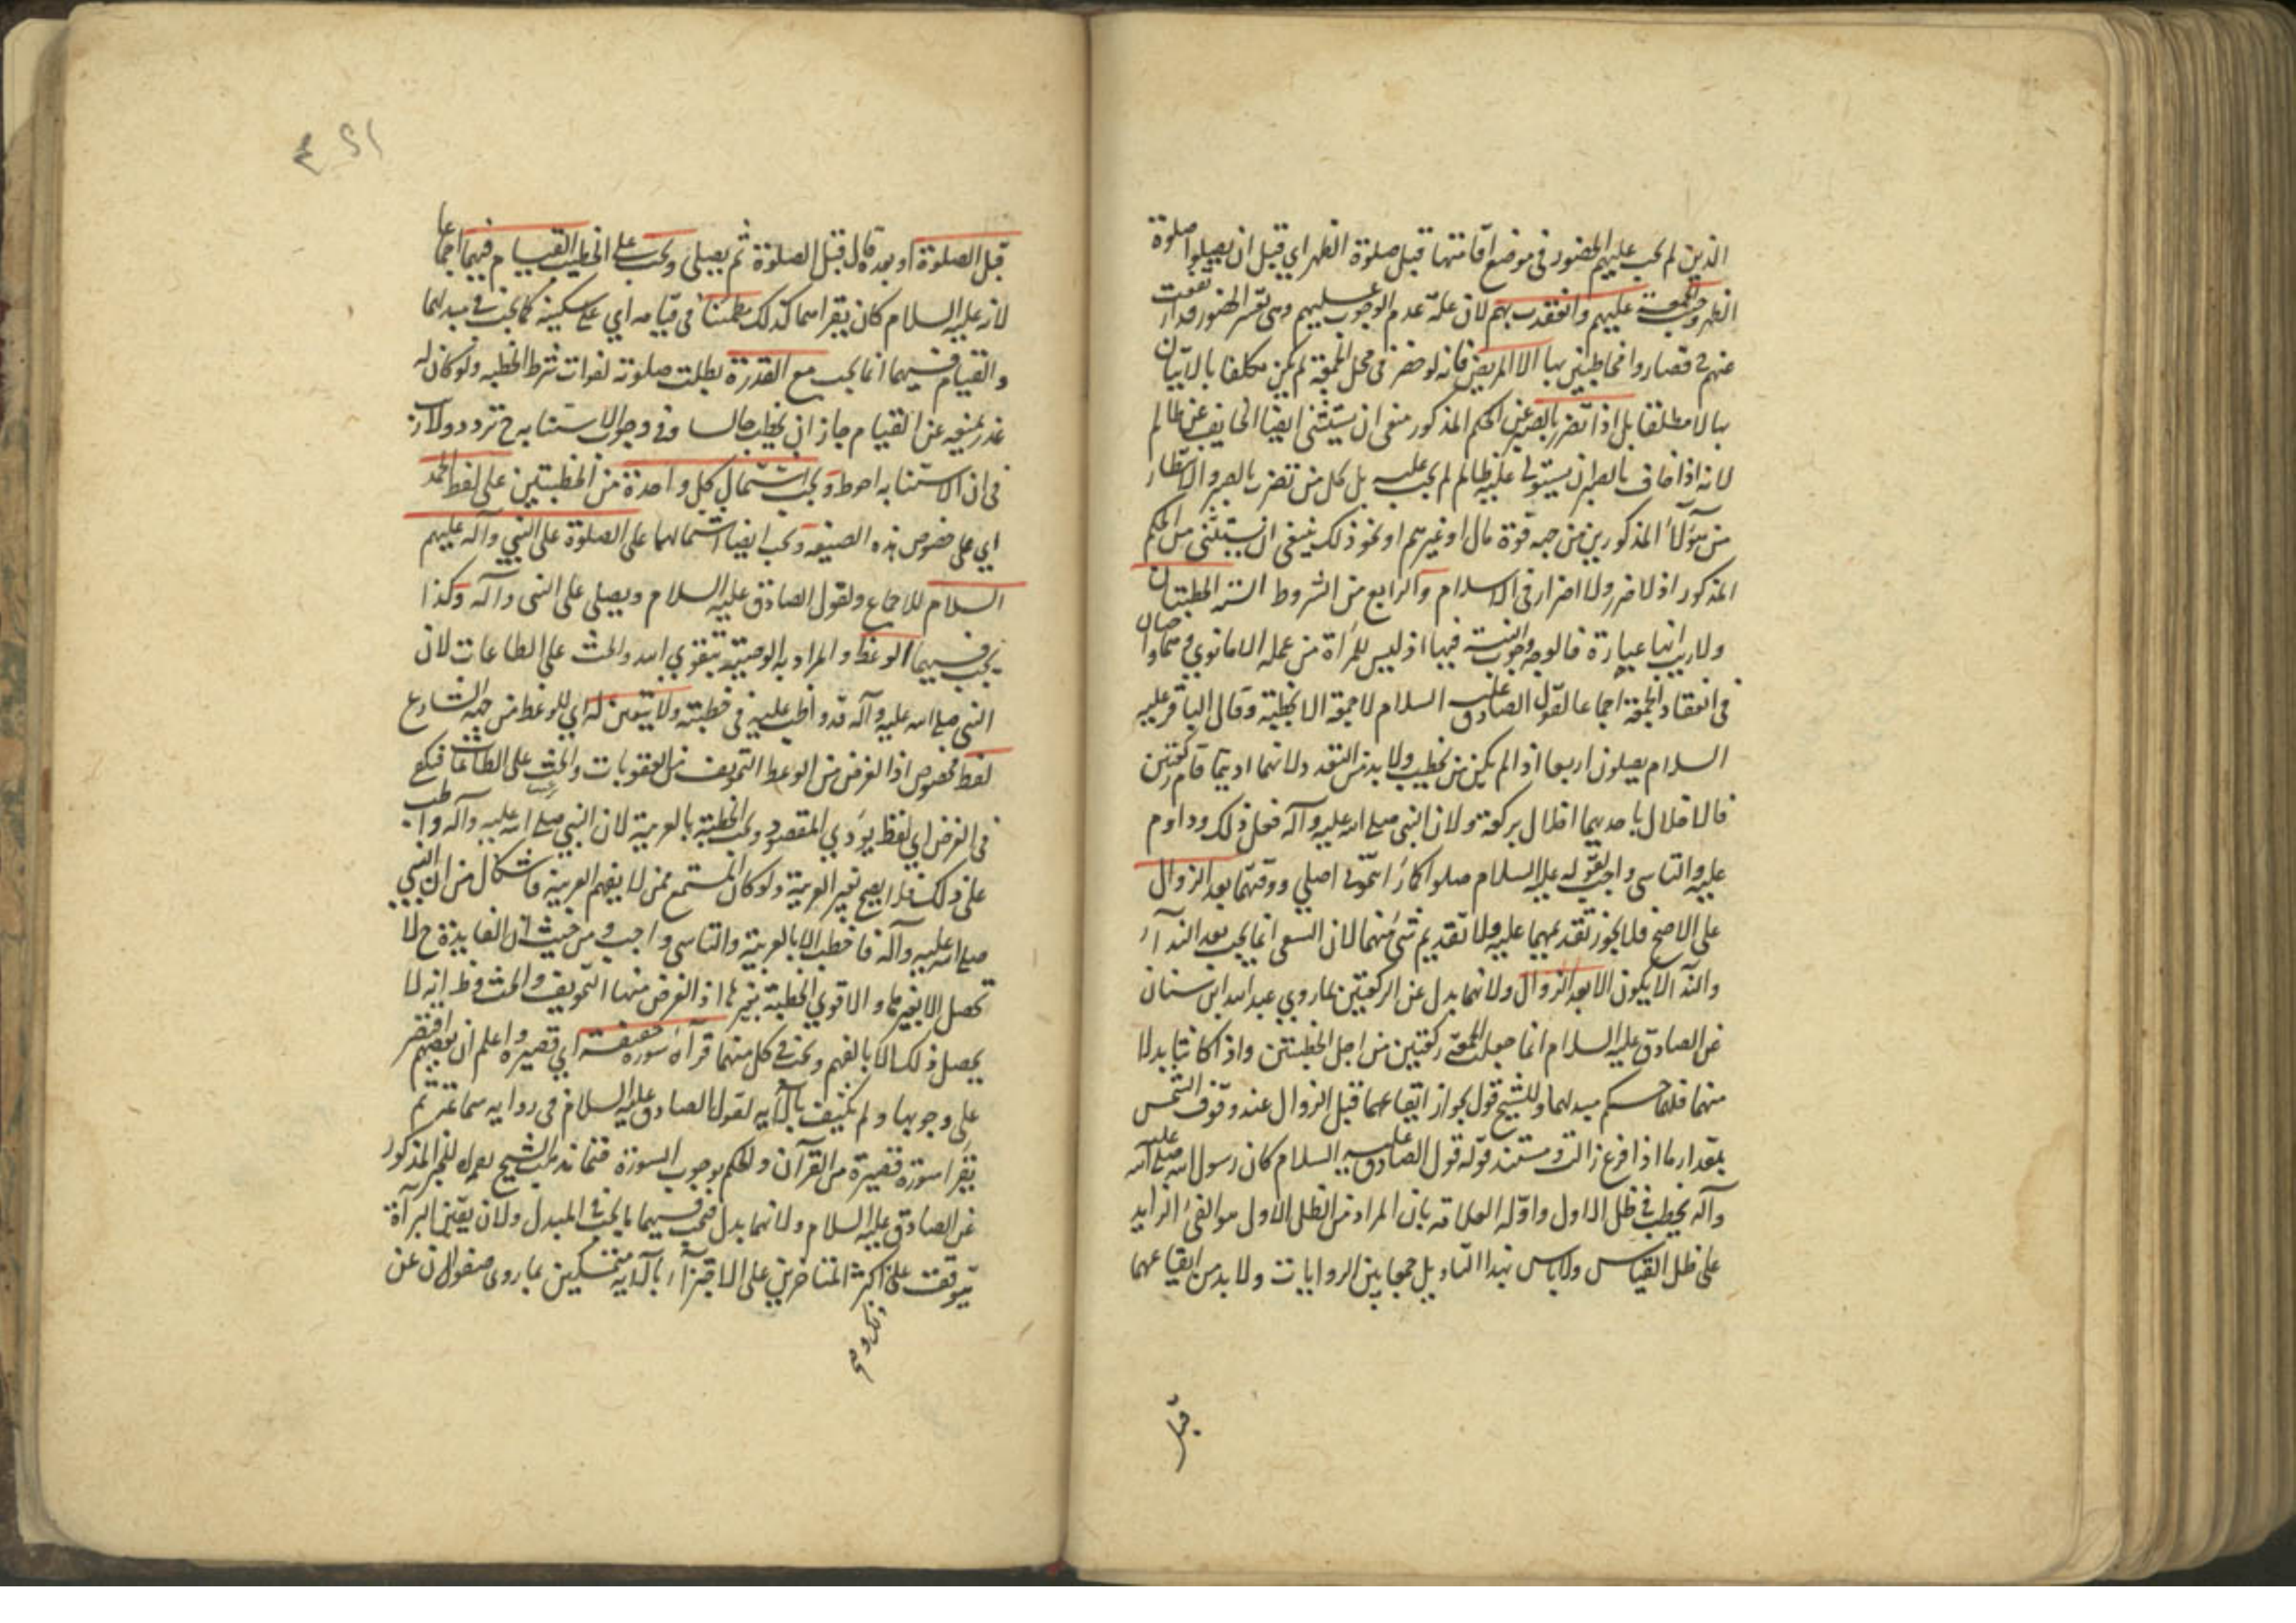 الذين لم يجب عليهم الحضور في موضع اقامتها قبل صلوة الظهر اي قبل ان يصلوا صلوة
الظهر وجبت الجمعة عليهم وانعقدت بهم لان علة عدم الوجوب عليهم وهي تعسر الحضور قد ارتفعت
عنهم فصاروا مخاطبين بها الا المريض فانه لو حضر في محل الجمعة لم يكن مكلفا بالاتيان
بها لا مطلقا بل اذا تضرر بالصبر عن الحكم المذكور ان يستثنى ايضا الخايف عن ظالم
لانه اذا خاف بالصبر ان يستولي عليه ظالم لم يجب عليه بل كل من تضرر بالصبر والانتظار
من هؤلاء المذكورين من جهة قوة مال او غيرهم او نحو ذلك ينبغي ان يستثنى من الحكم
المذكور اذ لا ضرر ولا اضرار في الاسلام والرابع من الشروط الستة الخطبتان
ولا ريب انها عبارة فالوجه وجوب النية فيها اذ ليس للمرأة من عمله الا ما نوى وهما واجبتان
في انعقاد الجمعة اجماعا لقول الصادق عليه السلام لا جمعة الا بخطبة وقال الباقر عليه
السلام يصلون اربعا اذا لم يكن من يخطب ولا بد من التعدد ولانهما اديتا مقام ركعتين
فالاخلال باحديهما اخلال بركعة ولان النبي صلى الله عليه وآله فعل ذلك وداوم
عليه والتاسي واجب لقوله عليه السلام صلوا كما رأيتموني اصلي ووقتهما بعد الزوال
على الاصح فلا يجوز تقديمهما عليه ولا تقديم شيء منهما لان السعي انما يجب بعد النداء
والنداء لا يكون الا بعد الزوال ولانهما بدل عن الركعتين لما روي عبد الله ابن سنان
عن الصادق عليه السلام انما جعلت الجمعة ركعتين من اجل الخطبتين واذا كانتا بدلا
منهما فلهما حكم مبدلهما وللشيخ قول بجواز ايقاعهما قبل الزوال عند وقوف الشمس
بمقدار ما اذا فرغ زالت ومستند قوله قول الصادق عليه السلام كان رسول الله صلى الله عليه
وآله يخطب في ظل الاول واوله العلامة بان المراد من الظل الاول هو الفئ الزايد
على ظل القياس ولا باس بهذا التاويل جمعا بين الروايات ولا بد من ايقاعهما
قبل
قبل الصلوة او بعده قال قبل الصلوة ثم يصلي ويجب على الخطيب القيام فيهما اجماعا
لانه عليه السلام كان يقراهما كذلك مطمئنا في قيامه اي على سكينة كما يجب في مبدلهما
والقيام فيهما انما يجب مع القدرة بطلت صلوته لفوات شرط الخطبه ولو كان له
عذر يمنعه عن القيام جاز ان يخطب جالسا وفي وجوب الاستنابه ح تردد ولا ريب
في ان الاستنابه احوط ويجب اشتمال كل واحدة من الخطبتين على لفظ الحمد
اي على خصوص هذه الصيغه ويجب ايضا اشتمالهما على الصلوة على النبي وآله عليهم
السلام للاجماع ولقول الصادق عليه السلام ويصلي على النبي وآله وكذا
يجب فيهما الوعظ والمراد به الوصية بتقوي الله والحث على الطاعات لان
النبي صلى الله عليه وآله قد واظب عليه في خطبته ولا يتعين له اي للوعظ من جهة الشارع
لفظ مخصوص اذ الغرض من الوعظ التخويف من العقوبات والحث على الطاعات فيكفي
في الغرض اي لفظ يؤدي المقصود ويجب الخطبة بالعربية لان النبي صلى الله عليه وآله واظب
على ذلك فلا يصح بغير العربية ولو كان المستمع ممن لا يفهم العربية فاشكال من ان النبي
صلى الله عليه وآله ما خطب الا بالعربية والتاسي واجب ومن حيث ان الفايدة ح لا
تحصل الا بغيرها والاقوي الخطبة بغيرها اذ الغرض منها التخويف والحث وظ انه لا
يحصل ذلك الا بالفهم ويجب في كل منهما قرآءة سورة خفيفة اي قصيرة واعلم ان بعضهم اقتصر
على وجوبها ولم يكتف بالآيه لقول الصادق عليه السلام في روايه سماعة ثم
يقرا سورة قصيرة من القرآن والحكم بوجوب السورة مذهب الشيخ للخبر المذكور
عن الصادق عليه السلام ولانهما بدل فيجب فيهما ما يجب في المبدل ولان يقين البرآءة
يتوقف على اكثر المتاخرين على الاجتزآء بالآيه متمسكين بما روي صفوان عن